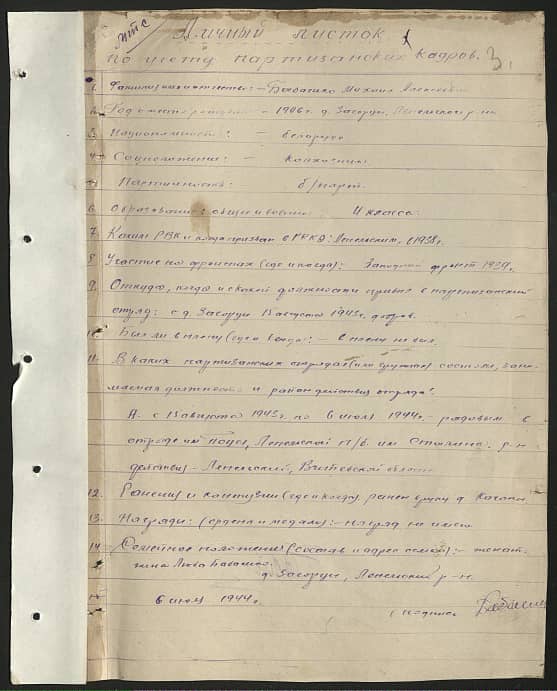 МТС
Личный листок
по учету партизанских кадров. 3.
1. Фамилия имя отчество: – Бабашко Михаил Алексеевич
2. Год и место рождения – 1906 г. д. Засорцы, Лепельского р-на
3. Национальность: – белорус
4. Соцположение: – Колхозник
5. Партийность: б/парт.
6. Образование: общее и военн 4 класса.
7. Каким РВК и когда призван в РККА: Лепельским, в 1938г.
8. Участие на фронтах (где и когда): – Западный фронт 1939г.
9. Откуда, когда и с какой должности прибыл в партизанский
отряд: с д. Засорцы 15 августа 1943г. добров.
10. Был ли в плену (где и когда): – в плену не был.
11. В каких партизанских отрядах (или группах) состоял, зани-
маемая должность и район действия отряда:
А. с 15 августа 1943г. по 6 июля 1944г. – рядовым в
отряде им Лепельской п/б. им Сталина: р-н
действия – Лепельский, Витебской области
12. Ранения и контузии (где и когда). ранен в руку д.
13. Награды: (ордена и медали): – наград не имею.
14. Семейное положение (состав и адрес семьи): – женат
жена Люба Бабашко.
д. Засорцы, Лепельский р-н.
6 июля 1944г.
(подпись